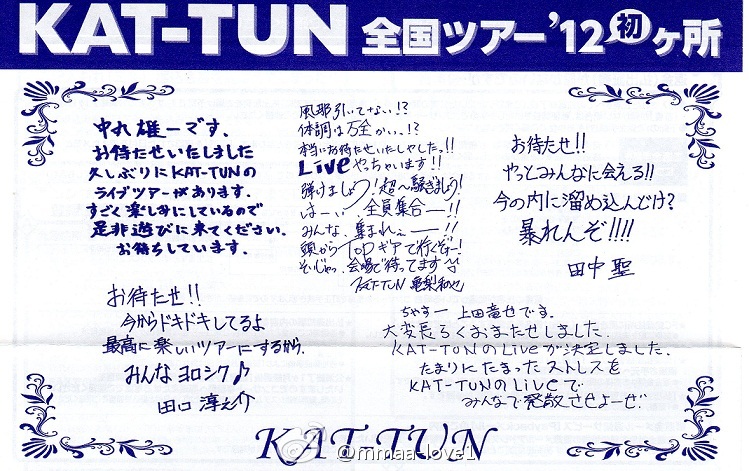 KAT-TUN 全国ツアー'12 初ヶ所
中丸雄一です。
お待たせいたしました
久しぶりにKAT-TUNの
ライブツアーがあります。
すごく楽しみにしているので
是非遊びに来てください。
お待ちしています。
風邪引いてない!?
体調は万全かい、、!?
本当にお待たせいたしやした。!!
Liveやっちゃいます!!
弾けましょう!超〜騒ぎましょう!
はーいっ、全員集合ー!!
みんな、集まれぇー!!
頭からTopギアで行くぞー!
そいじゃっ、会場で待ってます
KAT-TUN 亀梨和也
お待たせ!!
やっとみんなに会える!!
今の内に溜め込んどけ?
暴れんぞ!!!!
田中 聖
お待たせ!!
今からドキドキしてるよ
最高に楽しいツアーにするから、
みんなヨロシク♪
田口 淳之介
ちゃすー 上田竜也です。
大変長らくおまたせしました。
KAT-TUNのLiveが決定しました。
たまりにたまったストレスを
KAT-TUNのLiveで
みんなで発散させよーぜ!
KAT-TUN
@mmaa-love1